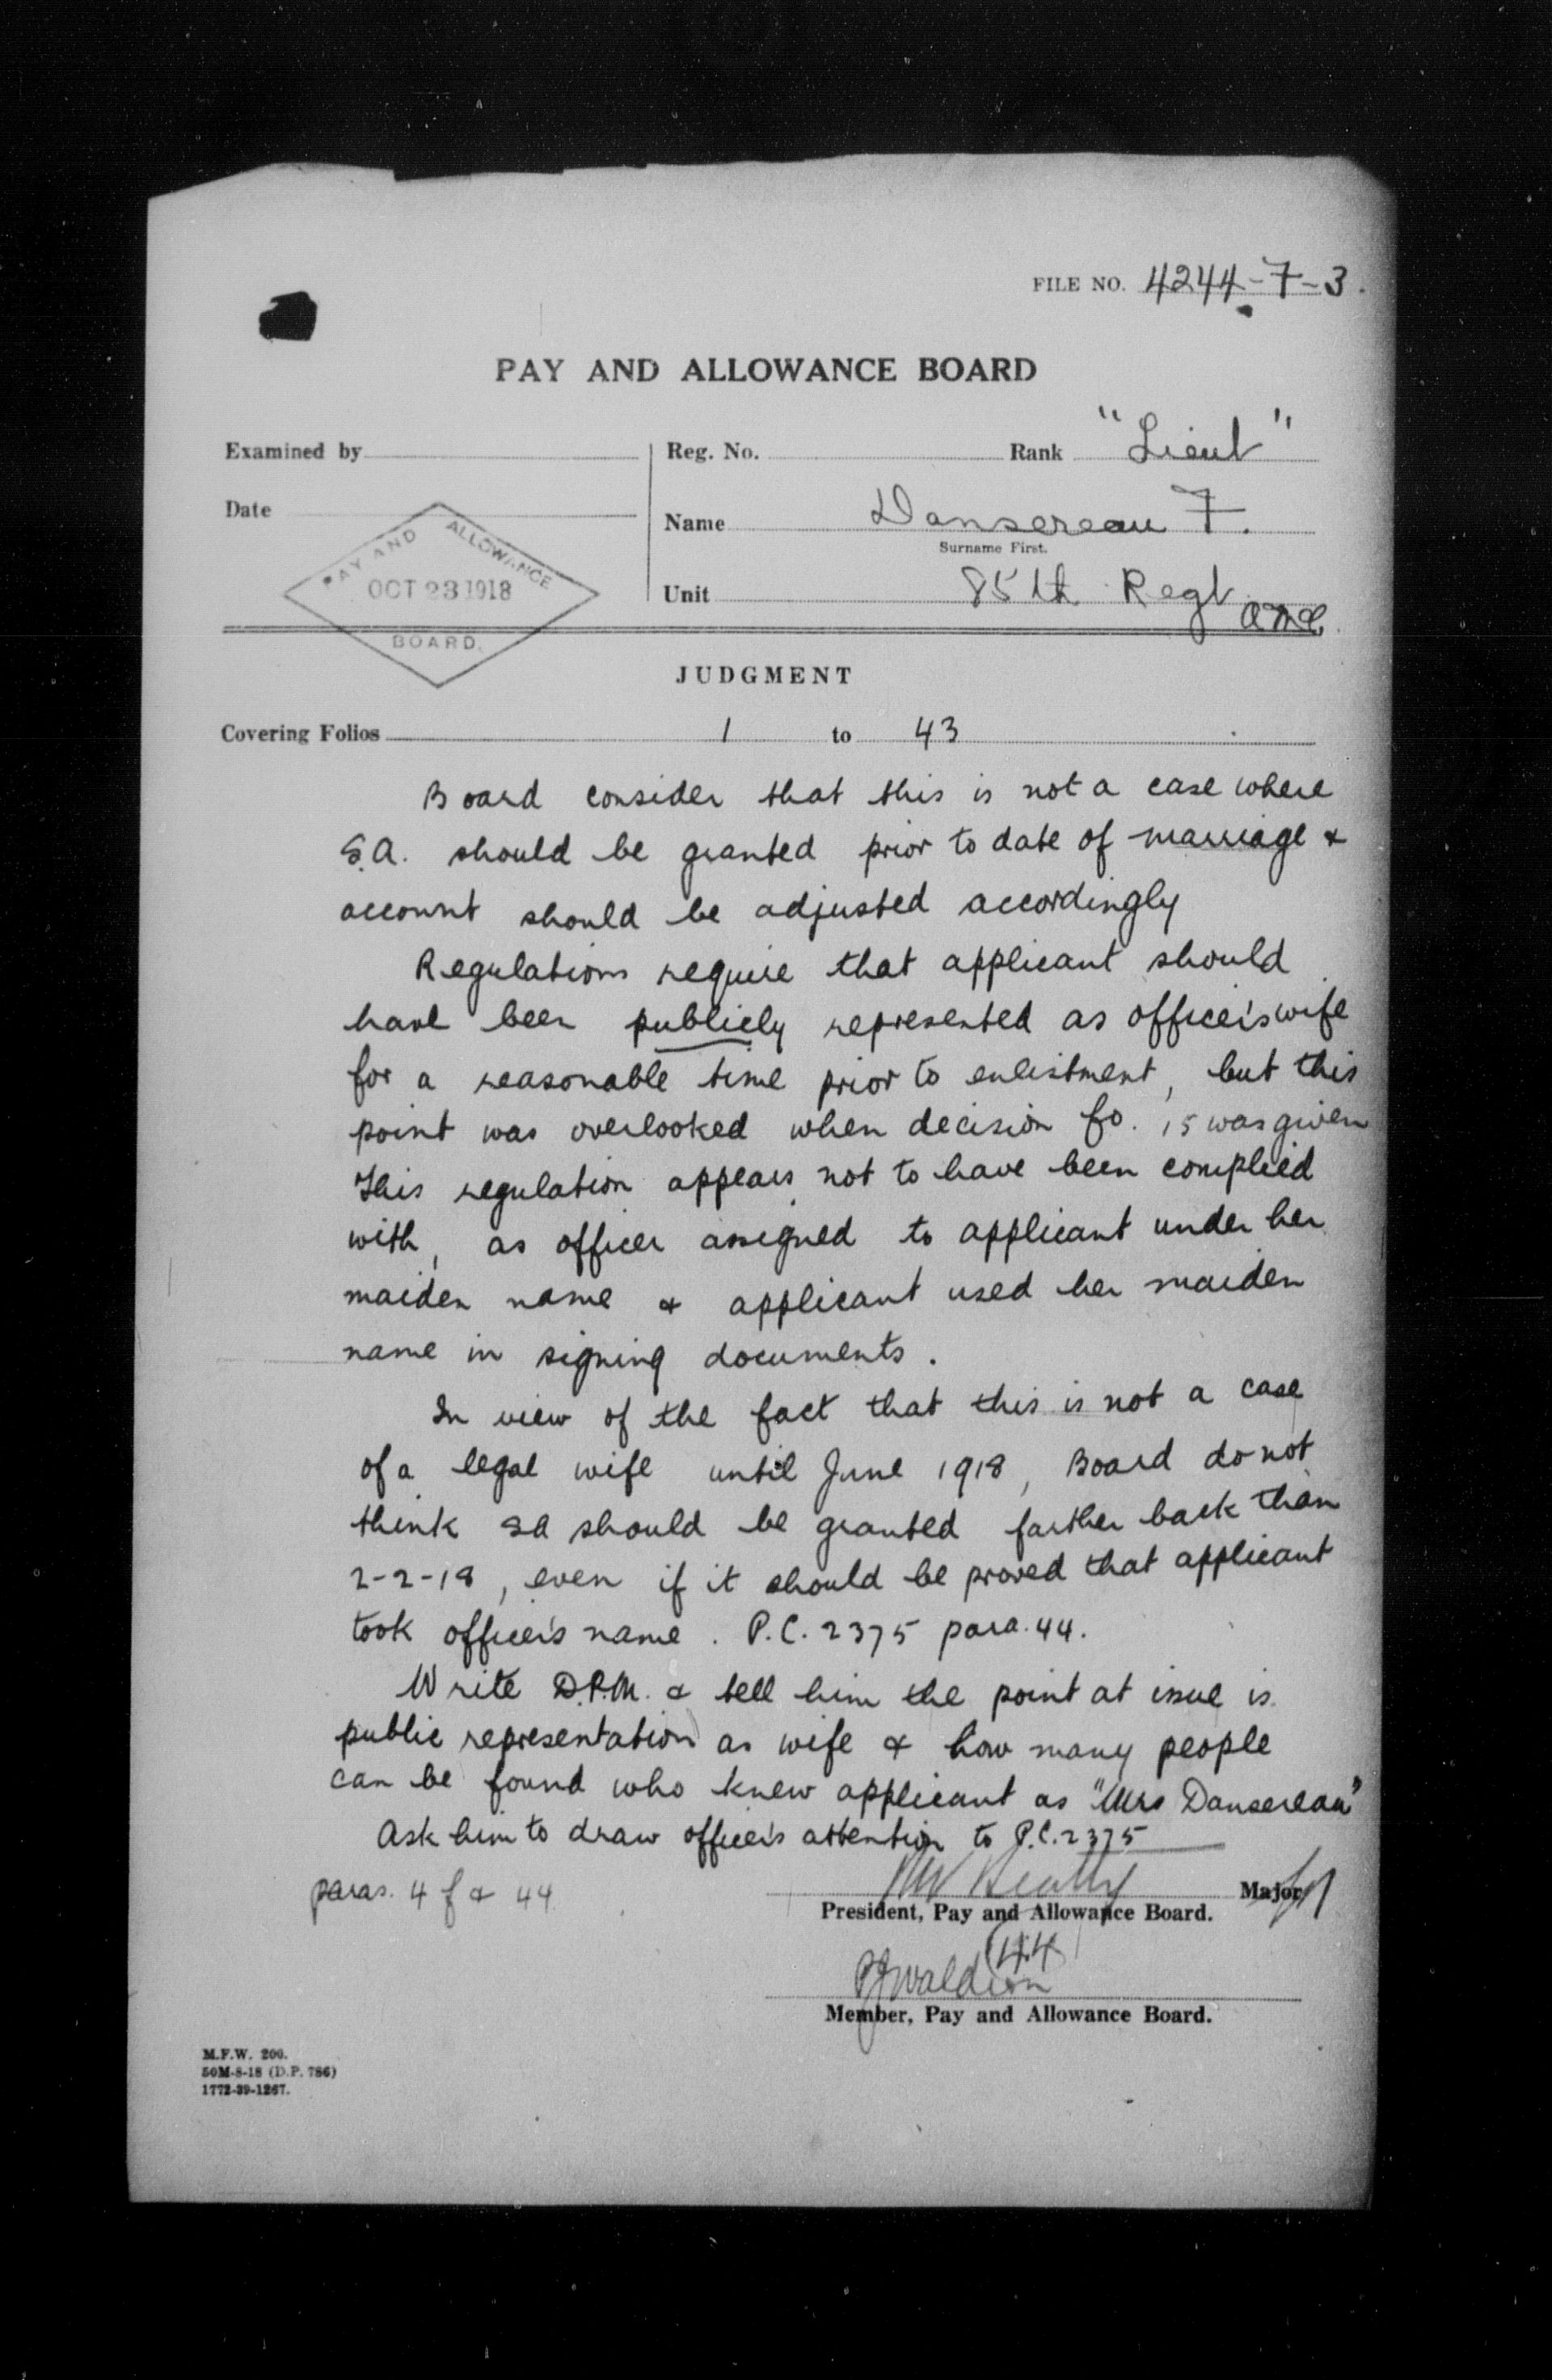 FILE NO. 4244-7-3.
PAY AND ALLOWANCE BOARD
Examined by
Reg. No. Rank "Lieut"
Date
Name Dansereau F.
Surname First.
PAY AND ALLOWANCE
OCT 23 1918
BOARD.
Unit 85th Regt
A.M.C.
JUDGMENT
Covering Folios 1 to 43
Board consider that this is not a case where
S.A. should be granted prior to date of marriage &
account should be adjusted accordingly
Regulations require that applicant should
have been publicly represented as officer's wife
for a reasonable time prior to enlistment, but this
point was overlooked when decision fo. 15 was given
This regulation appears not to have been complied
with, as officer assigned to applicant under her
maiden name & applicant used her maiden
name in signing documents.
In view of the fact that this is not a case
of a legal wife until June 1918, Board do not
think SA should be granted farther back than
2-2-18, even if it should be proved that applicant
took officer's name. P.C. 2375 para. 44.
Write D.P.M. & tell him the point at issue is
public representation as wife & how many people
can be found who knew applicant as "Mrs Dansereau"
Ask him to draw officer's attention to P.C. 2375
paras. 4 f & 44
Major
President, Pay and Allowance Board.
44
Waldron
Member, Pay and Allowance Board.
M.F.W. 200.
50M-8-18 (D.P. 786)
1772-39-1267.